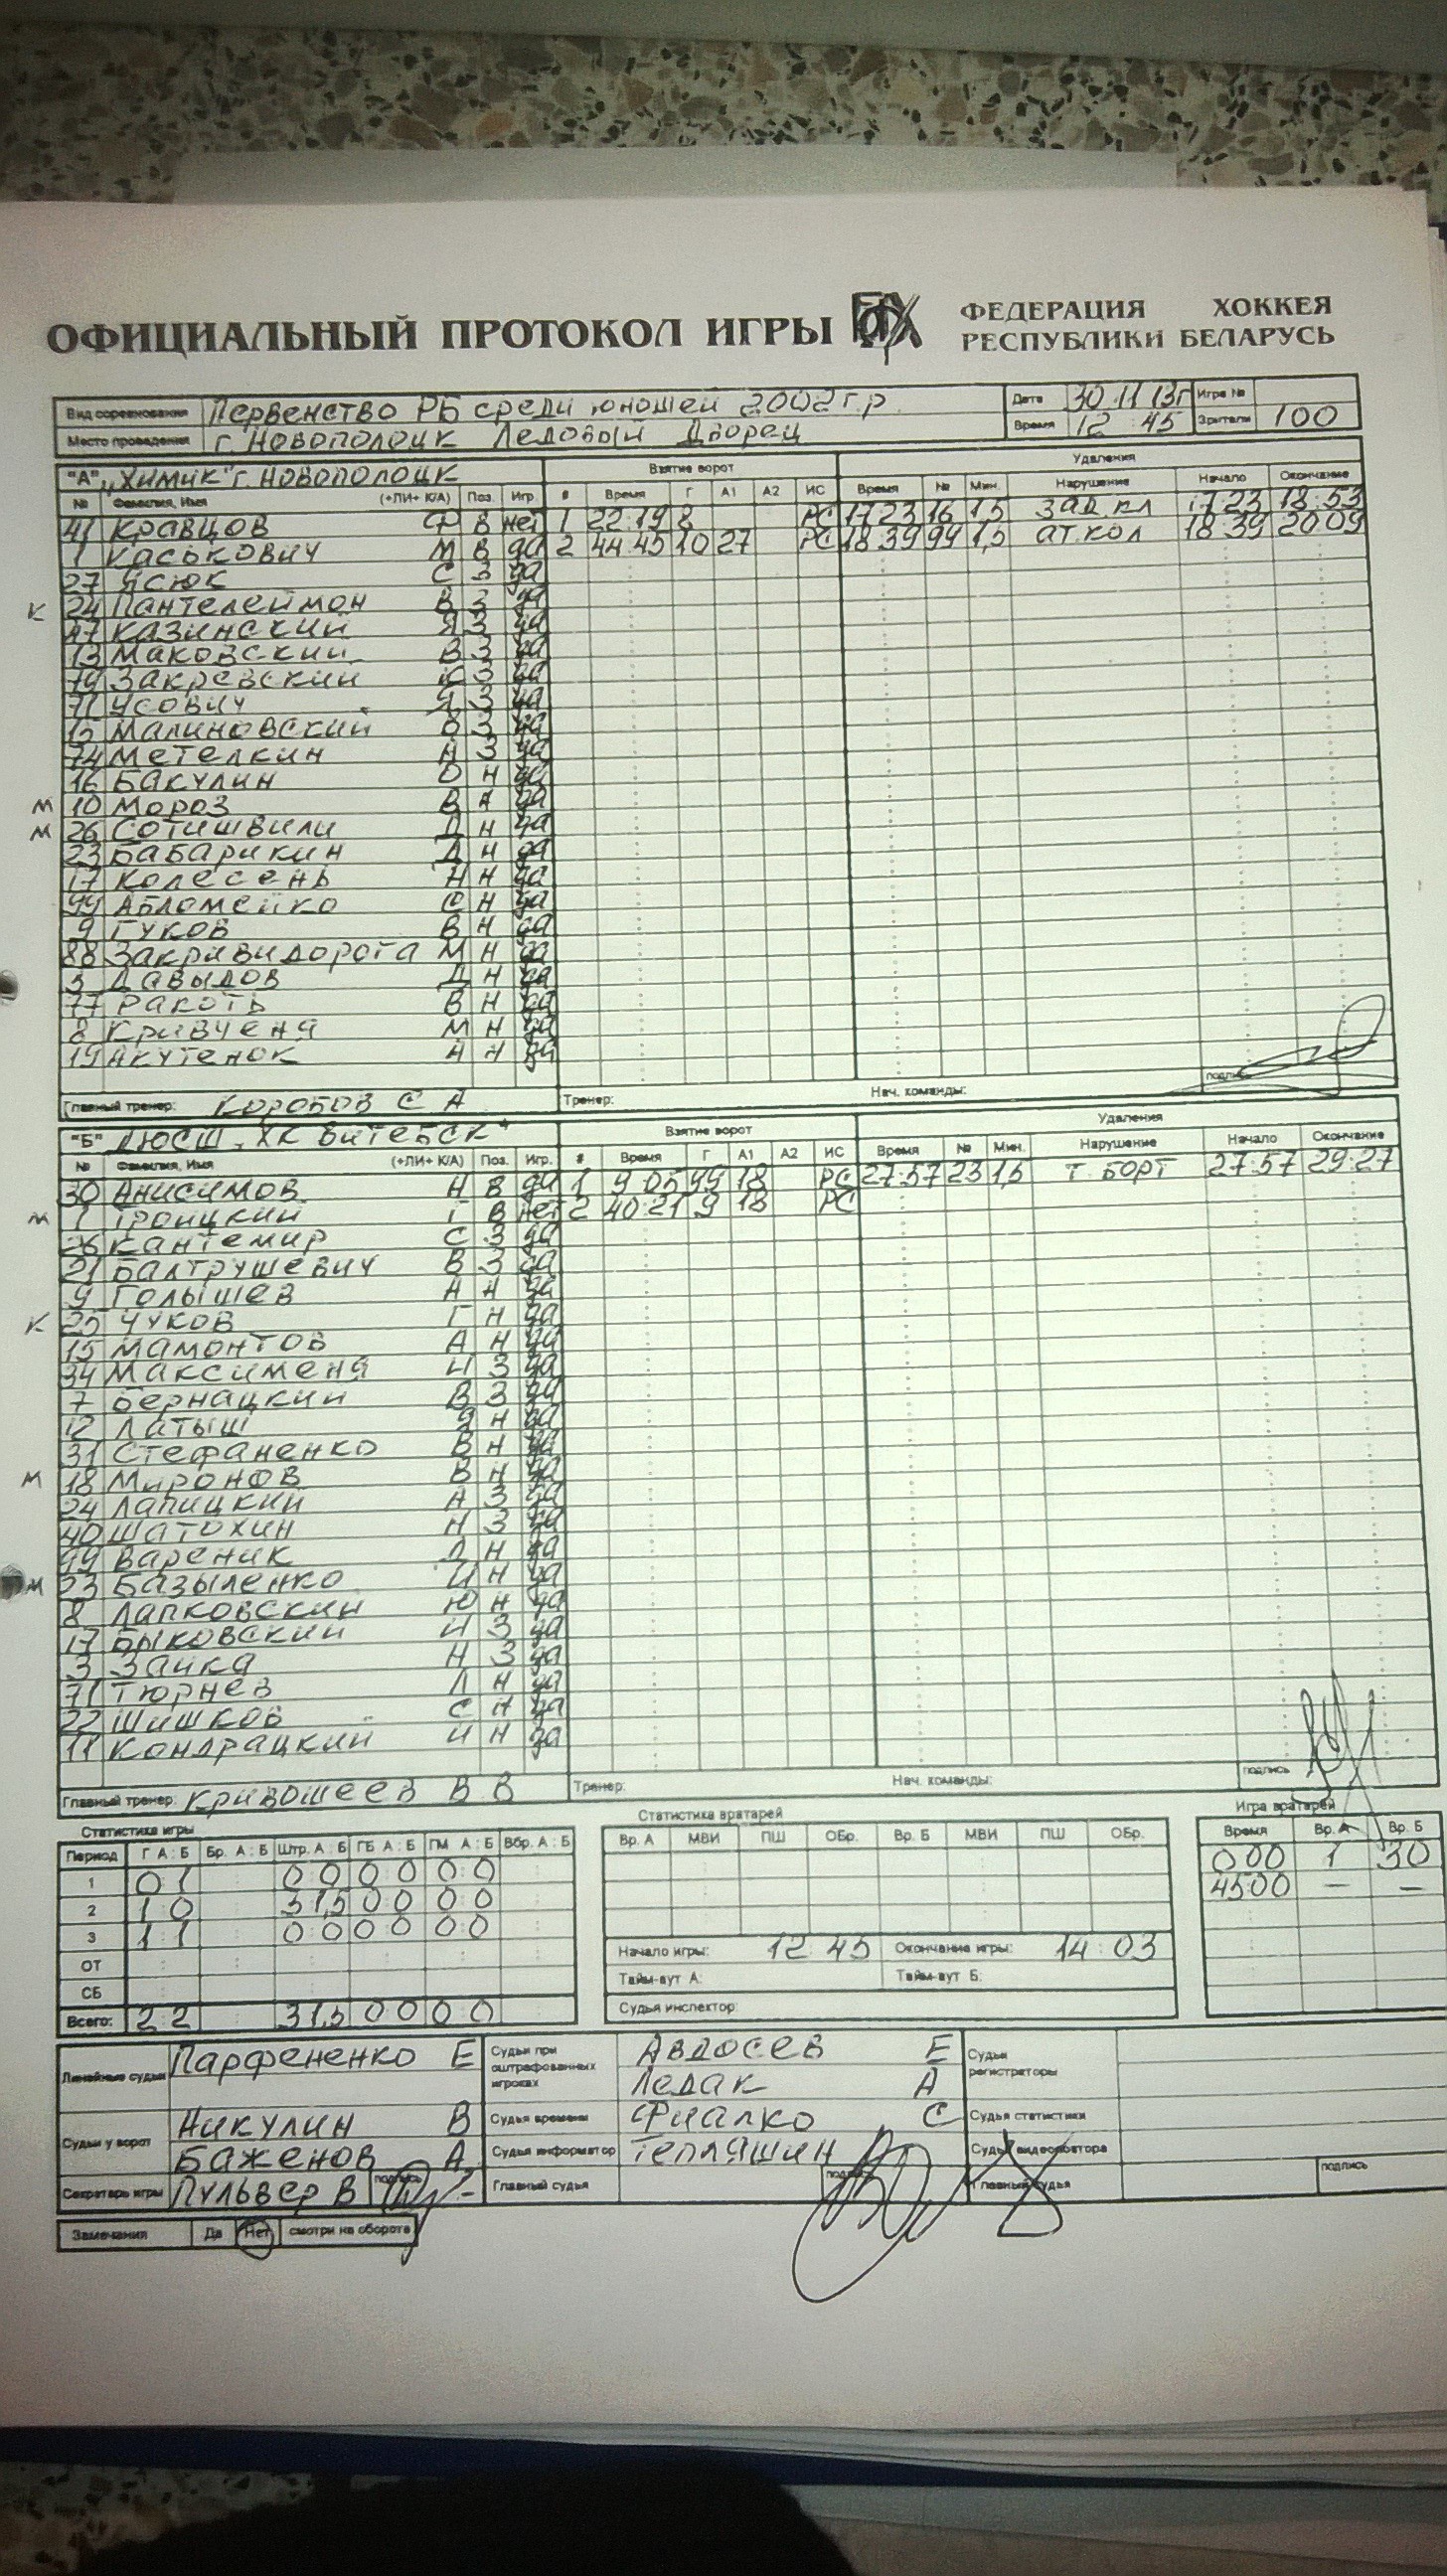 ОФИЦИАЛЬНЫЙ ПРОТОКОЛ ИГРЫ ФЕДЕРАЦИЯ ХОККЕЯ РЕСПУБЛИКИ БЕЛАРУСЬ
Вид соревнования Первенство РБ среди юношей 2002 г.р. Дата 30 11 13г Игра №
Место проведения г. Новополоцк Ледовый Дворец Время 12 : 45 Зрители 100
"А" „Химик" г. Новополоцк Взятие ворот Удаления
№ Фамилия, Имя (+ЛИ+ К/А) Поз. Игр. # Время Г А1 А2 ИС Время № Мин. Нарушение Начало Окончание
41 Кравцов Ф В нет 1 22:19 8 РС 17 23 16 1,5 зад кл 17 23 18:53
1 Каськович М В да 2 44:45 10 27 РС 18 39 99 1,5 ат кол 18 39 20 09
27 Ясюк С З да
К 24 Пантелеймон В З да
47 Казинский Я З да
13 Маковский В З да
79 Закревский К З да
71 Усович Я З да
15 Малиновский В З да
74 Метелкин А З да
16 Бакулин О Н да
М 10 Мороз В Н да
М 26 Сотишвили Д Н да
23 Бабарикин Д Н да
17 Колесень Н Н да
99 Абломейко О Н да
9 Гуков В Н да
88 Закривидорога М Н да
5 Давыдов Д Н да
77 Ракоть В Н да
8 Кривченя М Н да
19 Акутенок А Н да
Главный тренер: Коробов С А Тренер: Нач. команды: подпись
"Б" ДЮСШ „ХК Витебск" Взятие ворот Удаления
№ Фамилия, Имя (+ЛИ+ К/А) Поз. Игр. # Время Г А1 А2 ИС Время № Мин. Нарушение Начало Окончание
30 Анисимов Н В да 1 9 05 99 18 РС 27:57 23 1,5 т. борт 27:57 29:27
М 1 Троицкий Г В нет 2 40:21 9 18 РС
26 Кантемир С З да
21 Балтрушевич В З да
9 Голышев А Н да
К 25 Чуков Г Н да
15 Мамонтов А Н да
34 Максименя И З да
7 Бернацкий В З да
12 Латыш Я Н да
31 Стефаненко В Н да
М 18 Миронов В Н да
24 Лапицкий А З да
40 Шатохин Н З да
99 Вареник Д Н да
М 23 Базыленко И Н да
8 Лапковский Ю Н да
17 Быковский И З да
3 Зайка Н З да
71 Тюрнев Л Н да
22 Шишков С Н да
11 Кондрацкий И Н да
Главный тренер: Кривошеев В В Тренер: Нач. команды: подпись
Статистика игры Статистика вратарей Игра вратарей
Период Г А : Б Бр. А : Б Штр. А : Б ГБ А : Б ГМ А : Б Вбр. А : Б Вр. А МВИ ПШ ОБр. Вр. Б МВИ ПШ ОБр. Время Вр. А Вр. Б
1 0 1 0 0 0 0 0 0 0 00 1 30
2 1 0 3 1,5 0 0 0 0 45 00 — —
3 1 1 0 0 0 0 0 0
Начало игры: 12 45 Окончание игры: 14 : 03
ОТ
Тайм-аут А: Тайм-аут Б:
СБ
Судья инспектор:
Всего: 2 2 3 1,5 0 0 0 0
Линейные судьи Парфененко Е Судьи при оштрафованных игроках Авдосев Е Судьи регистраторы
Ледак А
Судьи у ворот Никулин В Судья времени Фиалко С Судья статистики
Баженов А. Судья информатор Тепляшин Судья видеоповтора
Секретарь игры Пульвер В подпись Главный судья подпись Главный судья подпись
Замечания Да Нет смотри на обороте